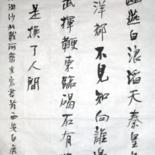 幽燕白浪滔天秦皇
洋都不見知向誰邊
武揮鞭東臨碣石有
是換了人間
浪淘沙北戴河